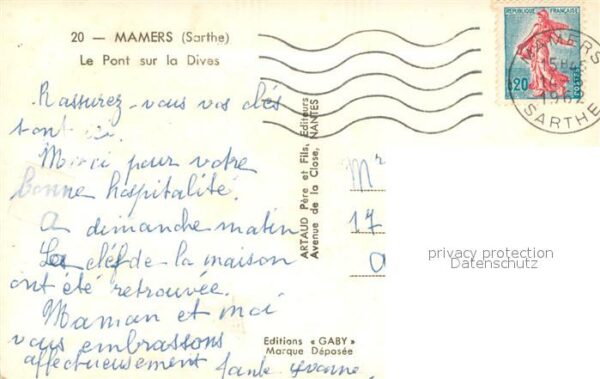 20 — MAMERS (Sarthe)
Le Pont sur la Dives
Rassurez-vous vos clés
sont ici.
Merci pour votre
bonne hospitalité.
A dimanche matin
La clef de la maison
ont été retrouvée.
Maman et moi
vous embrassons
affectueusement Tante Yvonne
ARTAUD Père et Fils, Editeurs
Avenue de la Close, NANTES
Editions « GABY »
Marque Déposée
REPUBLIQUE FRANÇAISE
0,20
POSTES
MAMERS
SARTHE
Mr
17
privacy protection
Datenschutz